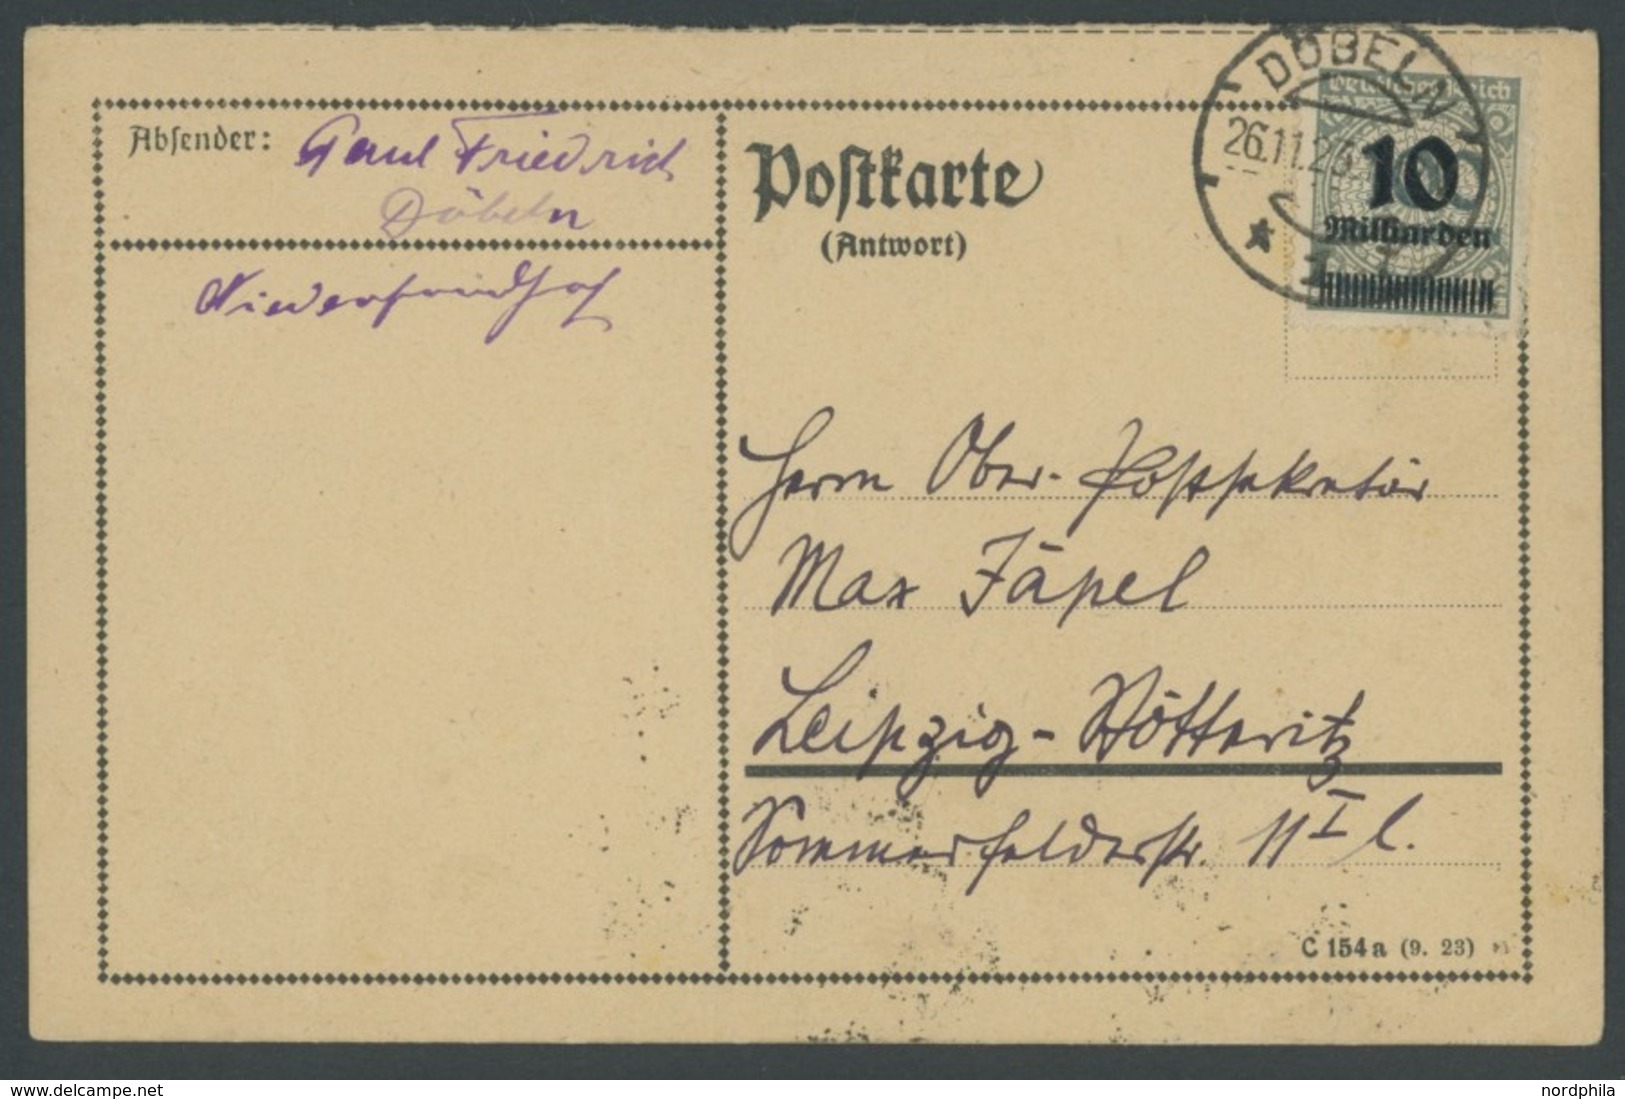 Absender: Paul Friedrich
Döbeln
Postkarte
(Antwort)
DÖBELN
26.11.23
Deutsches Reich
10
Milliarden
Herrn Ober-Postsekretär
Max Jäpel
Leipzig-Stötteritz
Sommerfelderstr. 11 I l.
C 154 a (9. 23)
www.delcampe.net
nordphila